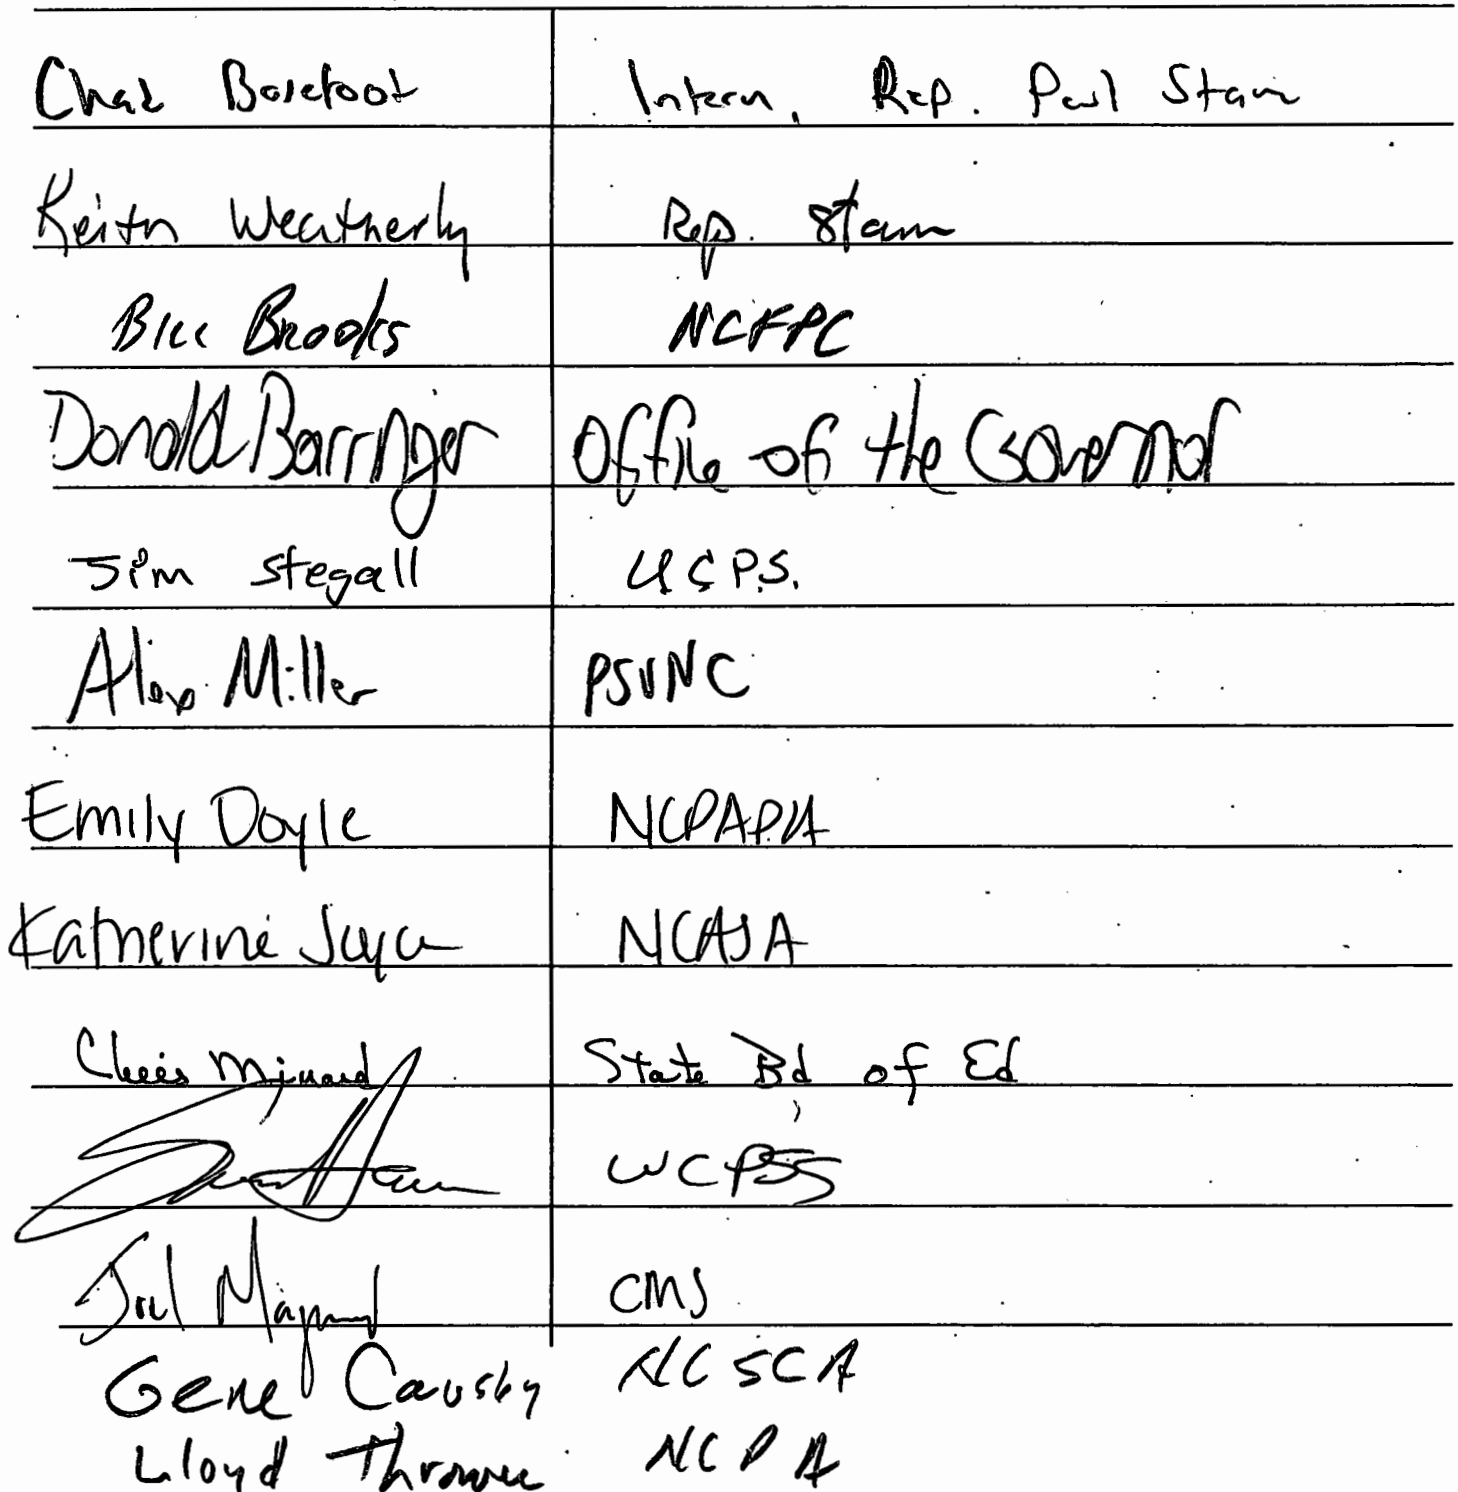 Chad Barefoot Intern, Rep. Paul Stam
Keith Weatherly Rep. Stam
Bill Brooks NCFPC
Donald Barringer Office of the Governor
Jim Stegall UCPS.
Alex Miller PSUNC
Emily Doyle NCPAPA
Katherine Joyce NCASA
Chris Minard State Bd of Ed
WCPSS
Jul Maynard CMS
Gene Causby NCSCA
Lloyd Thrower NCPA